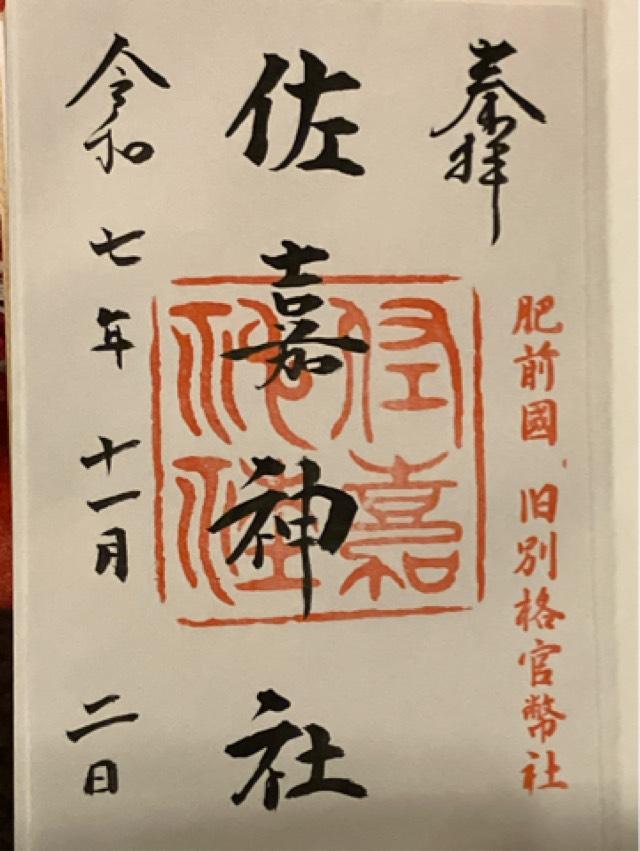 奉拝
肥前國、旧別格官幣社
佐嘉神社
佐嘉神社
令和七年十一月二日